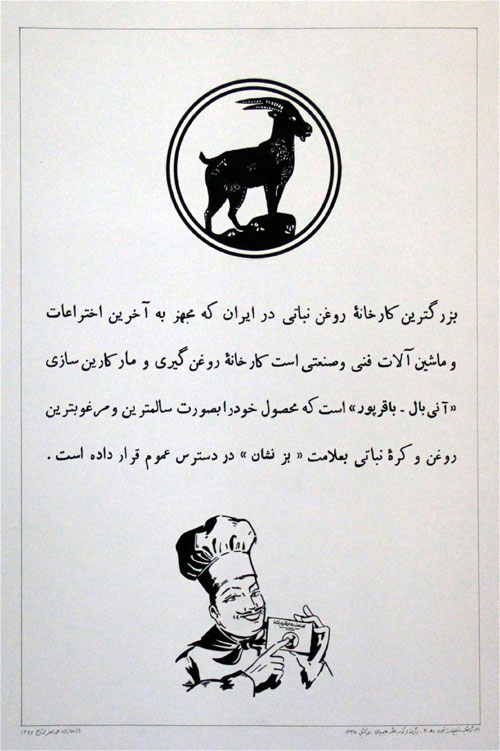 بزرگترین کارخانهٔ روغن نباتی در ایران که مجهز به آخرین اختراعات
و ماشین آلات فنی وصنعتی است کارخانهٔ روغن گیری و مارکارین سازی
«آنی بال ـ باقرپور» است که محصول خودرا بصورت سالمترین و مرغوبترین
روغن و کرهٔ نباتی بعلامت « بز نشان » در دسترس عموم قرار داده است .